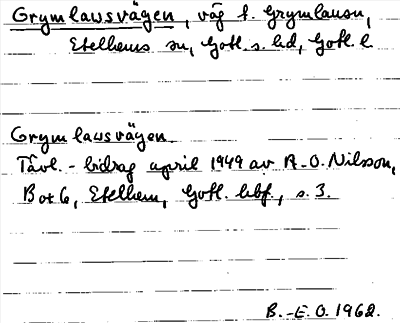 Grymlausvägen, väg t. Grymlausn,
Etelhems sn, Gotl. s. hd, Gotl. l.
Grymlausvägen.
Tävl.-bidrag april 1949 av A.-O. Nilsson,
Box 6, Etelhem, Gotl. hbf., s. 3.
B.-E.O. 1962.